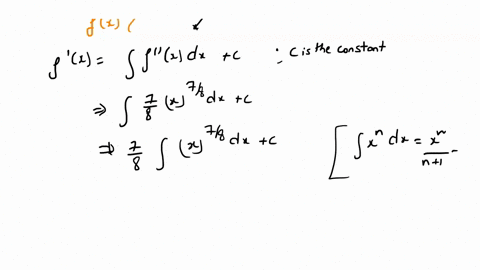 f(x) (
f'(x) = ∫ f''(x) dx + c ∵ c is the constant
⇒ ∫ 7/8 (x)^7/8 dx + c
⇒ 7/8 ∫ (x)^7/8 dx + c [ ∫ x^n dx = x^n/n+1 -